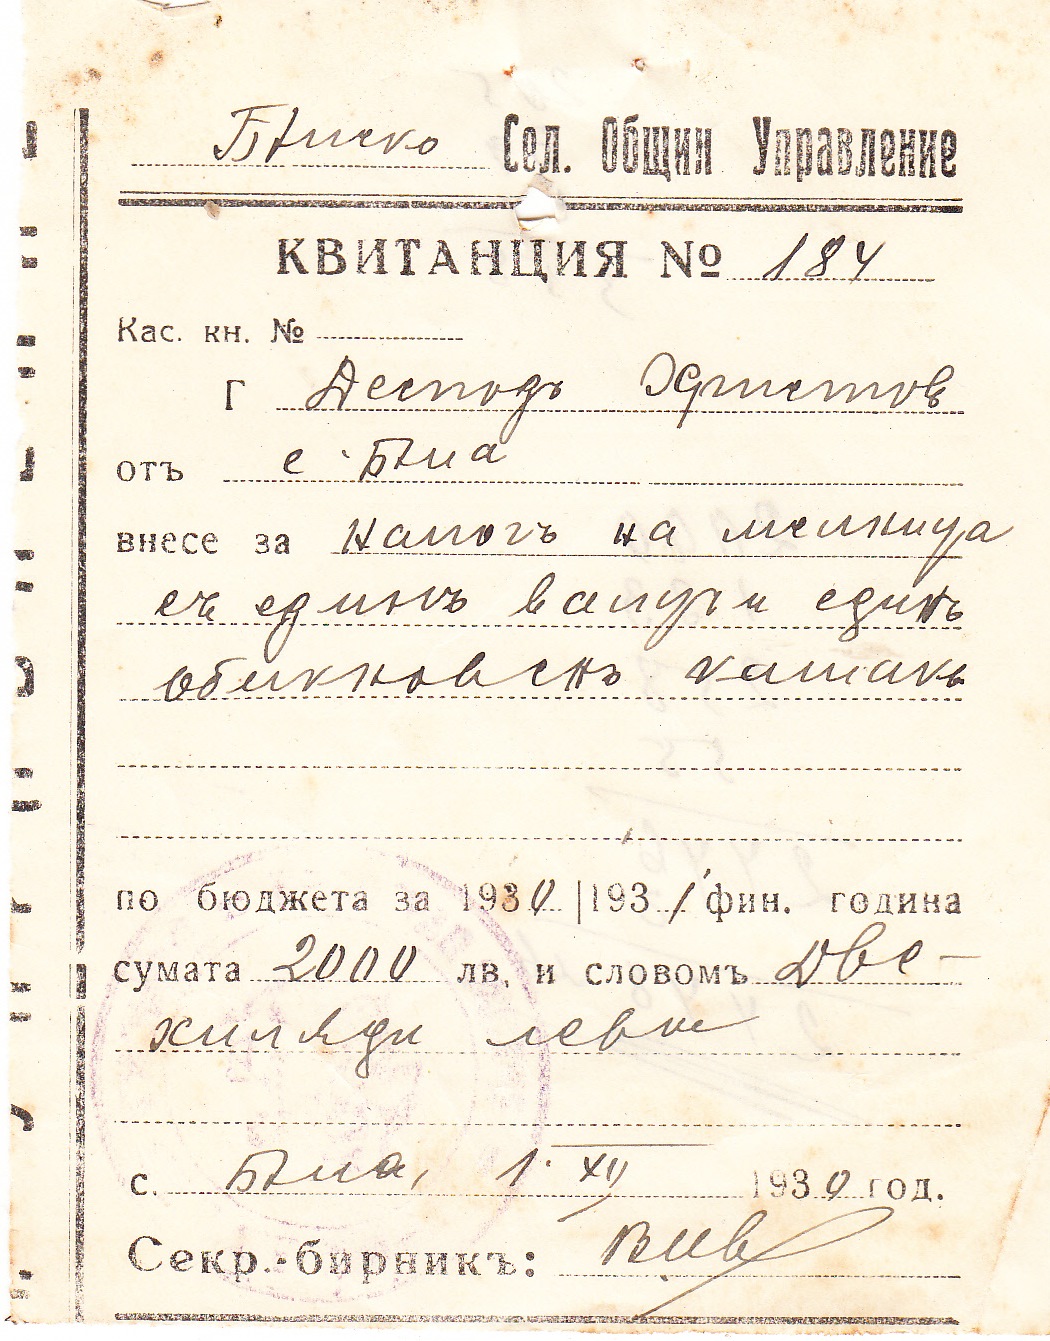 Бѣлско Сел. Общин Управление
КВИТАНЦИЯ № 184
Кас. кн. №
Г Десподъ Христов
отъ с. Бѣла
внесе за налогъ на мелница
съ единъ валцъ и единъ
обикновенъ камакъ
по бюджета за 1930|1931 фин. година
сумата 2000 лв, и словомъ две-
хиляди лева
с. Бѣла, 1. XII 1930 год.
Секр.-бирникъ: